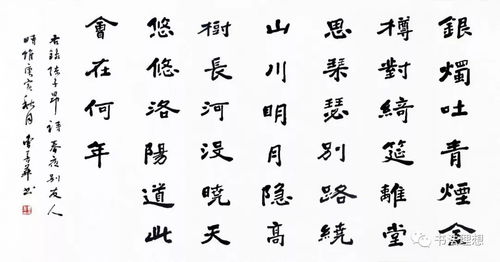 銀燭吐青煙金
樽對綺筵離堂
思琴瑟別路繞
山川明月隱高
樹長河沒曉天
悠悠洛陽道此
會在何年
陳子昂詩春夜別友人
時維庚寅秋月
书法理想